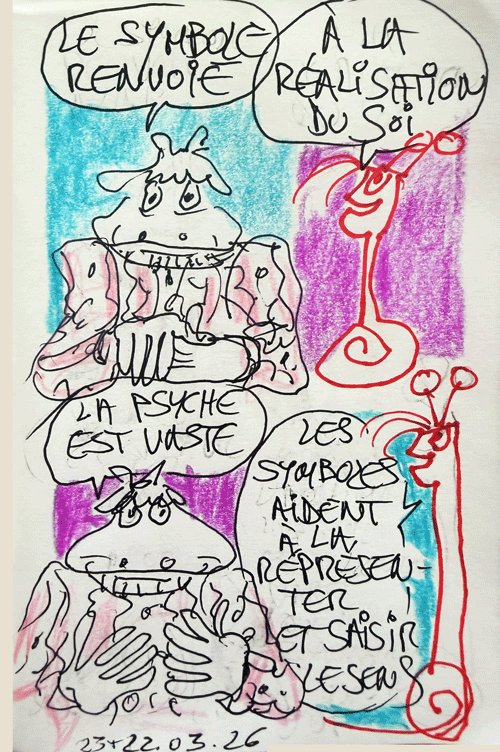 LE SYMBOLE
RENVOIE
À LA
RÉALISATION
DU SOI
LA PSYCHE
EST VASTE
LES
SYMBOLES
AIDENT
À LA
REPRÉSEN-
TER
ET SAISIR
LE SENS
23+22.03.26